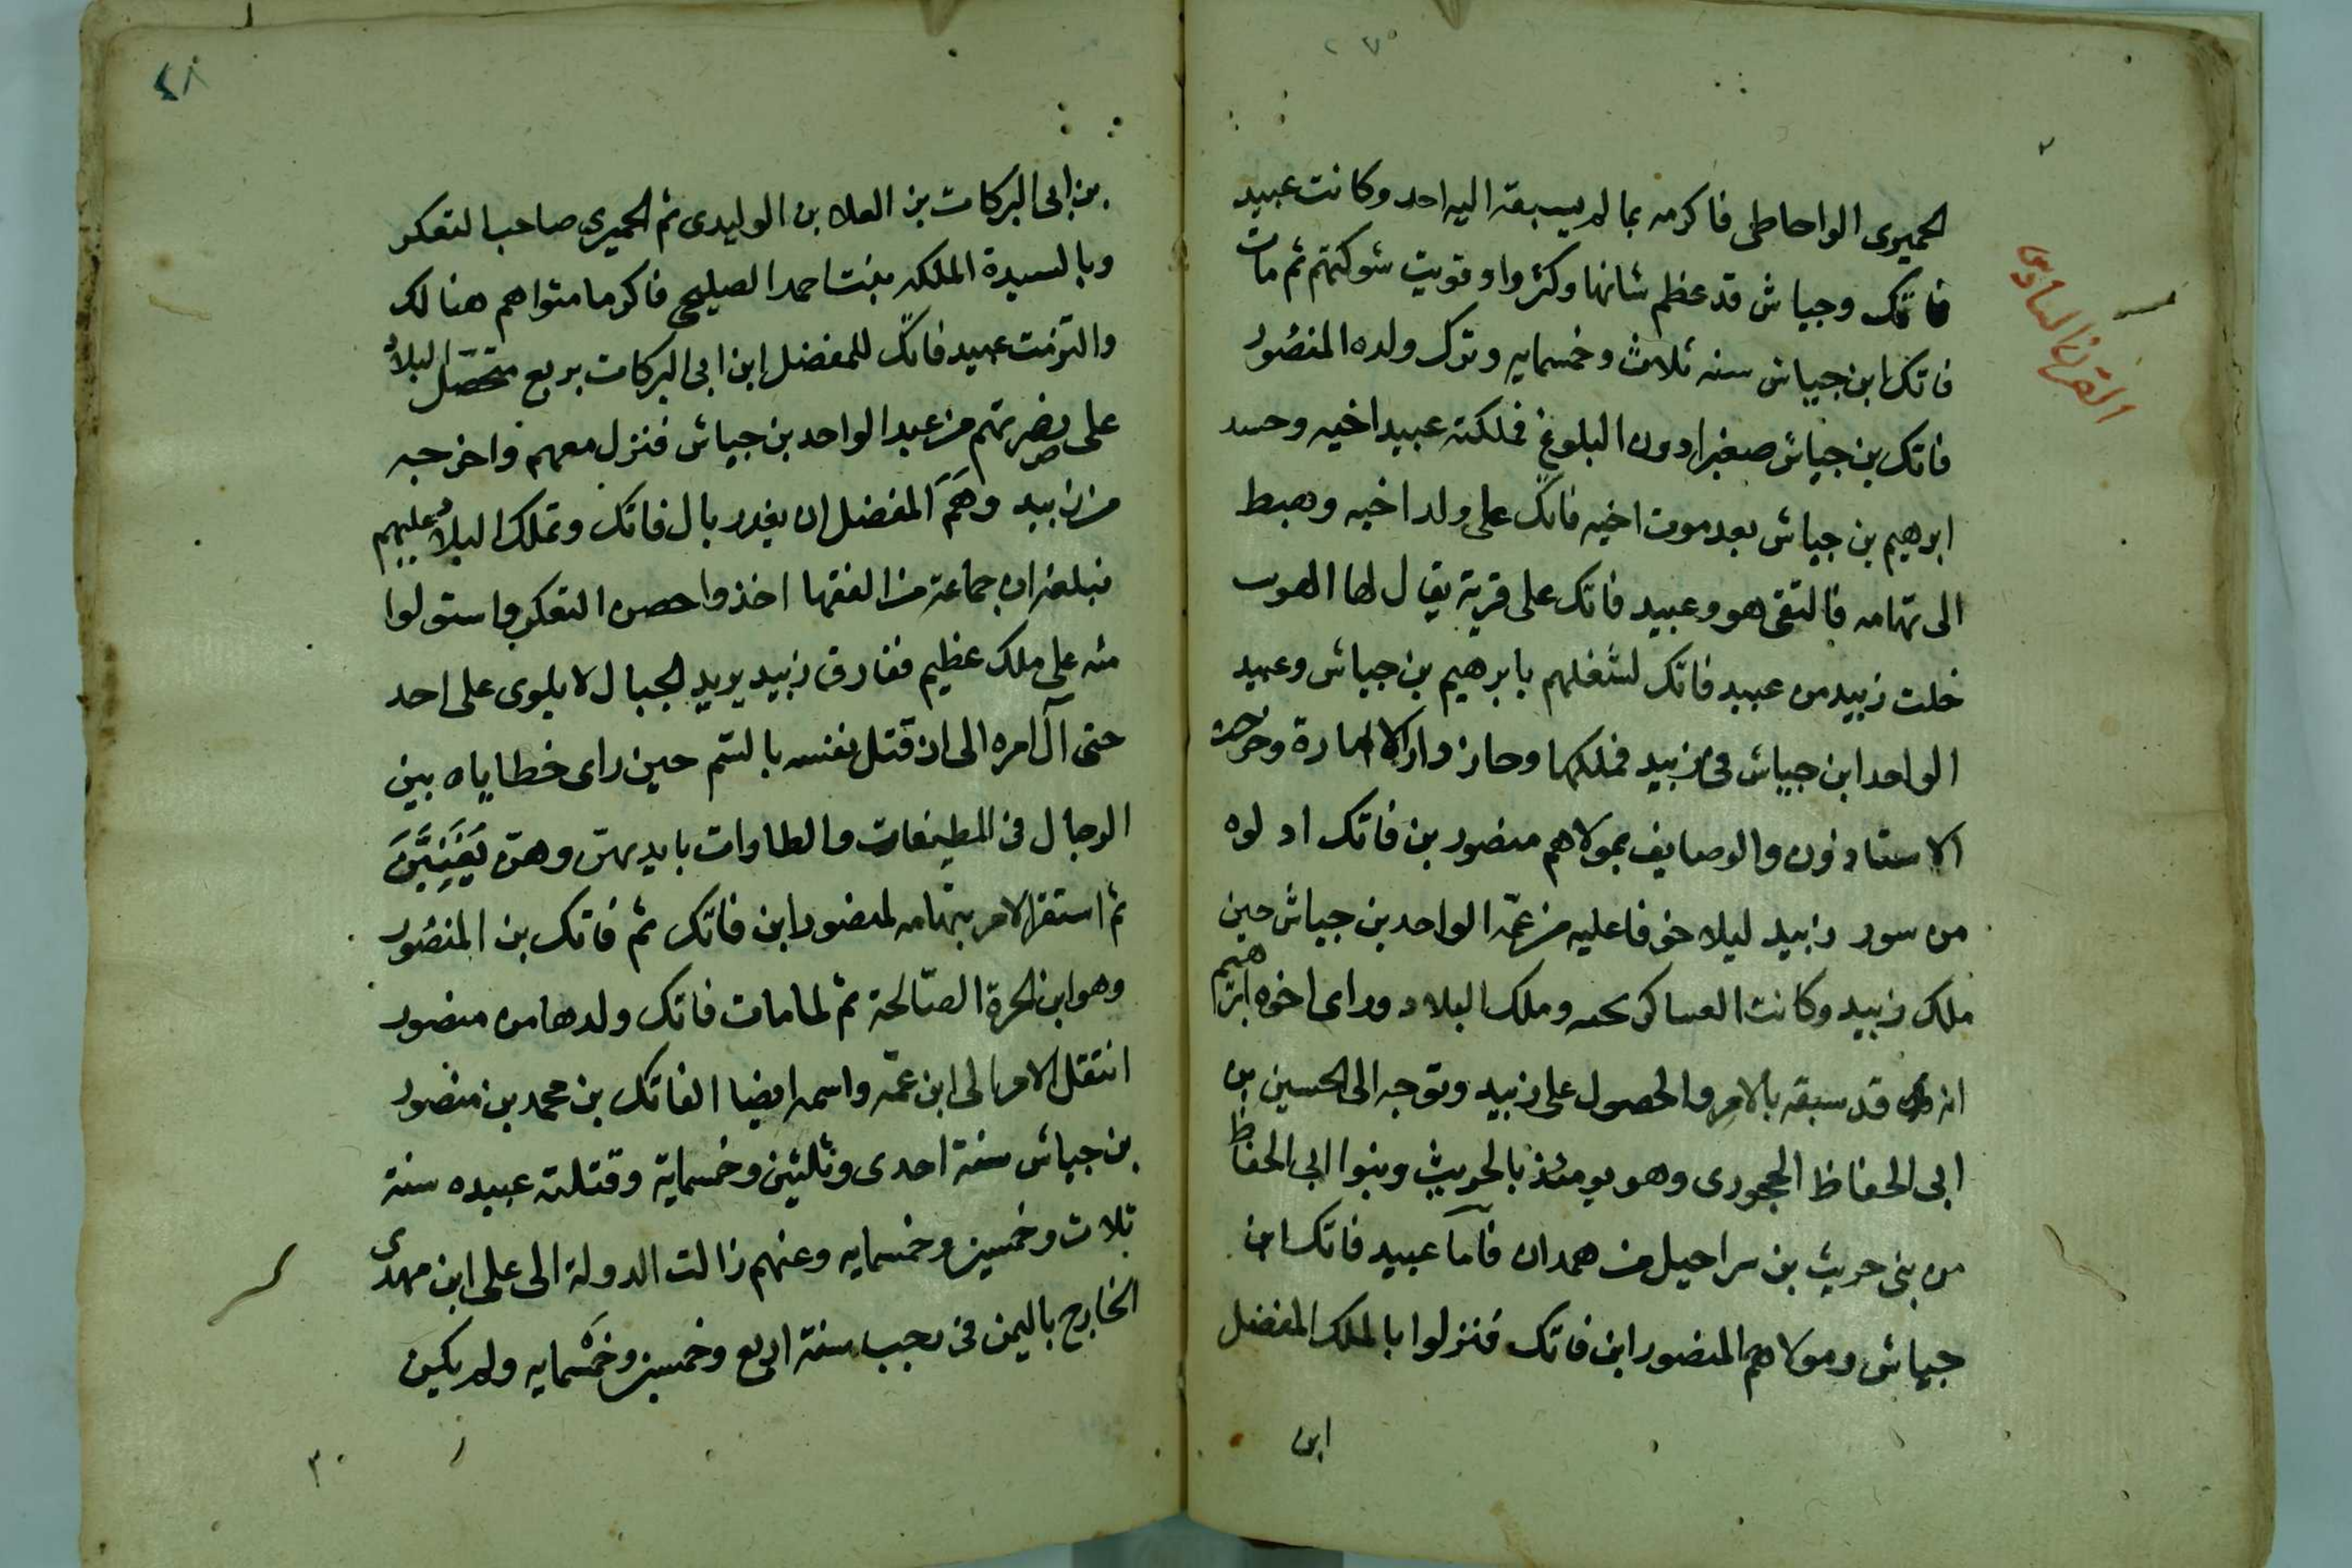 القرن السادس
الحميرى الواحاطى فاكرمه بما لم يسبقه اليه احد وكانت عبيد
فاتك وجياش قد عظم شانها وكثروا وقويت شوكتهم ثم مات
فاتك ابن جياش سنه ثلاث وخمسمايه وترك ولده المنصور
فاتك بن جياش صغيرا دون البلوغ فملكته عبيد اخيه وحسد
ابرهيم بن جياش بعد موت اخيه فاتك على ولد اخيه وهبط
الى تهامه فالتقى هو وعبيد فاتك على قرية يقال لها الهوب
خلت زبيد من عبيد فاتك لشغلهم بابرهيم بن جياش وعبيد
الواحد ابن جياش فى زبيد فملكها وحاز دار الامارة وخرجت
الاستاذون والوصايف بمولاهم منصور بن فاتك ادلوه
من سور زبيد ليلا خوفا عليه من عمّه الواحد بن جياش حين
ملك زبيد وكانت العساكر تحبه وملك البلاد وراى اخوه ابرهيم
انه قد سبقه بالامر والحصول على زبيد وتوجه الى الحسين بن
ابى الحفاظ الحجورى وهو يومئذ بالحريث وبنوا ابى الحفاظ
من بنى حريث بن سراحيل من همدان فآما عبيد فاتك ابن
جياش ومولاهم المنصور ابن فاتك فنزلوا بالملك المفضل
ابن
٤٨
بن ابى البركات بن العلا بن الوليدى ثم الحميرى صاحب التعكر
وبالسيدة الملكه بنت احمد الصليحى فاكرما مثواهم هنالك
والتزمت عبيد فاتك للمفضل ابن ابى البركات بربع متحصّل البلاد
على نصرتهم من عبد الواحد بن جياش فنزل معهم واخرجه
من زبيد وهَمَّ المفضل ان يغدر بال فاتك وتملك البلاد عليهم
فبلغه ان جماعة من الفقها اخذوا حصن التعكر واستولوا
منه على ملك عظيم ففارق زبيد يريد الجبال لا يلوى على احد
حتى آل امره الى ان قتل نفسه بالسّم حين راى خطاياه بين
الرجال فى المطيفات والطاوات بايديهنّ وهنّ يُغَنِينَ
ثم استقر الامر بتهامه لمنصور ابن فاتك ثم فاتك بن المنصُور
وهو ابن الحرة الصّالحة ثم لما مات فاتك ولدها من منصور
انتقل الامر الى ابن عمّه واسمه ايضا الفاتك بن محمد بن منصور
بن جياش سنة احدى وثلثين وخمسماية وقتلته عبيده سنة
ثلاث وخمسين وخمسمايه وعنهم زالت الدولة الى على ابن مهدى
الخارج باليمن فى رجب سنة اربع وخمسين وخَمْسمايه ولم يكن